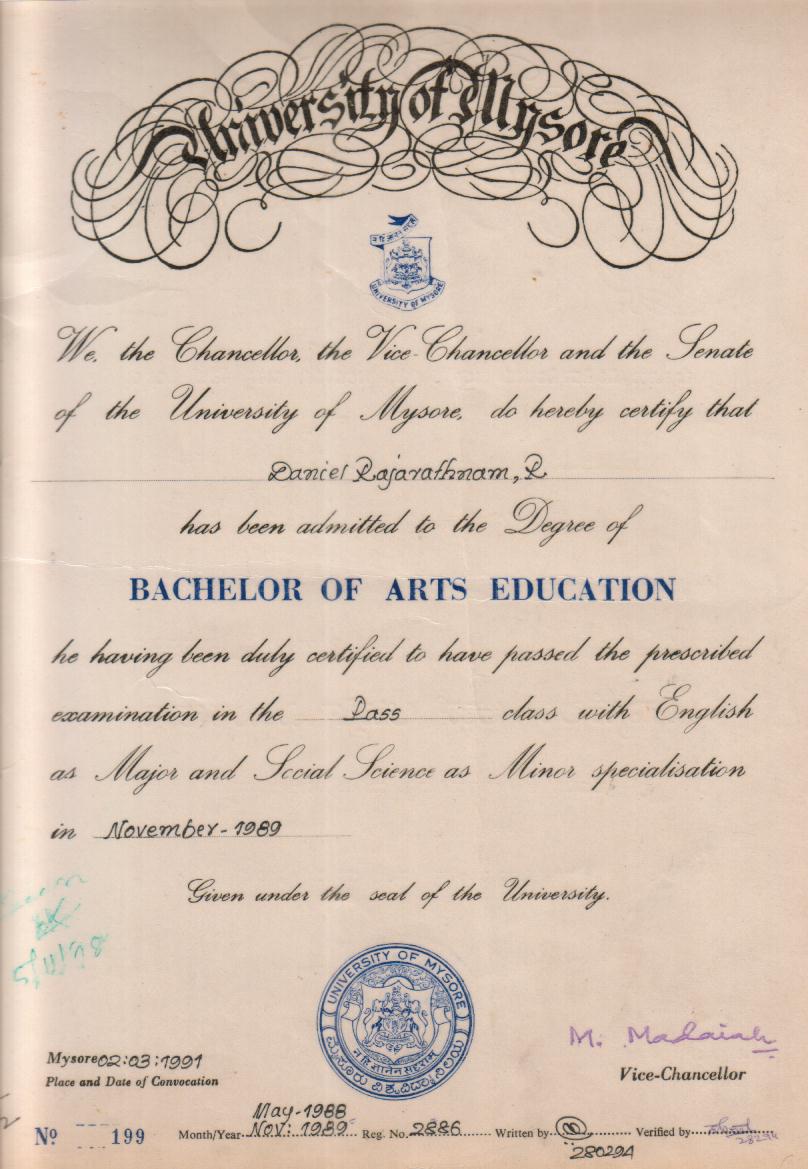 University of Mysore
न हि ज्ञानेन सदृशं
UNIVERSITY OF MYSORE
We, the Chancellor, the Vice-Chancellor and the Senate
of the University of Mysore, do hereby certify that
Daniel Rajarathnam, R
has been admitted to the Degree of
BACHELOR OF ARTS EDUCATION
he having been duly certified to have passed the prescribed
examination in the Pass class with English
as Major and Social Science as Minor specialisation
in November-1989
Given under the seal of the University.
5/11/98
UNIVERSITY OF MYSORE
न हि ज्ञानेन सदृशम्
ಮೈಸೂರು ವಿಶ್ವವಿದ್ಯಾನಿಲಯ
M. Madaiah
Mysore 02:03:1991
Vice-Chancellor
Place and Date of Convocation
May-1988
No 199 Month/Year NOV: 1989 Reg. No. 2886 Written by Verified by
280294